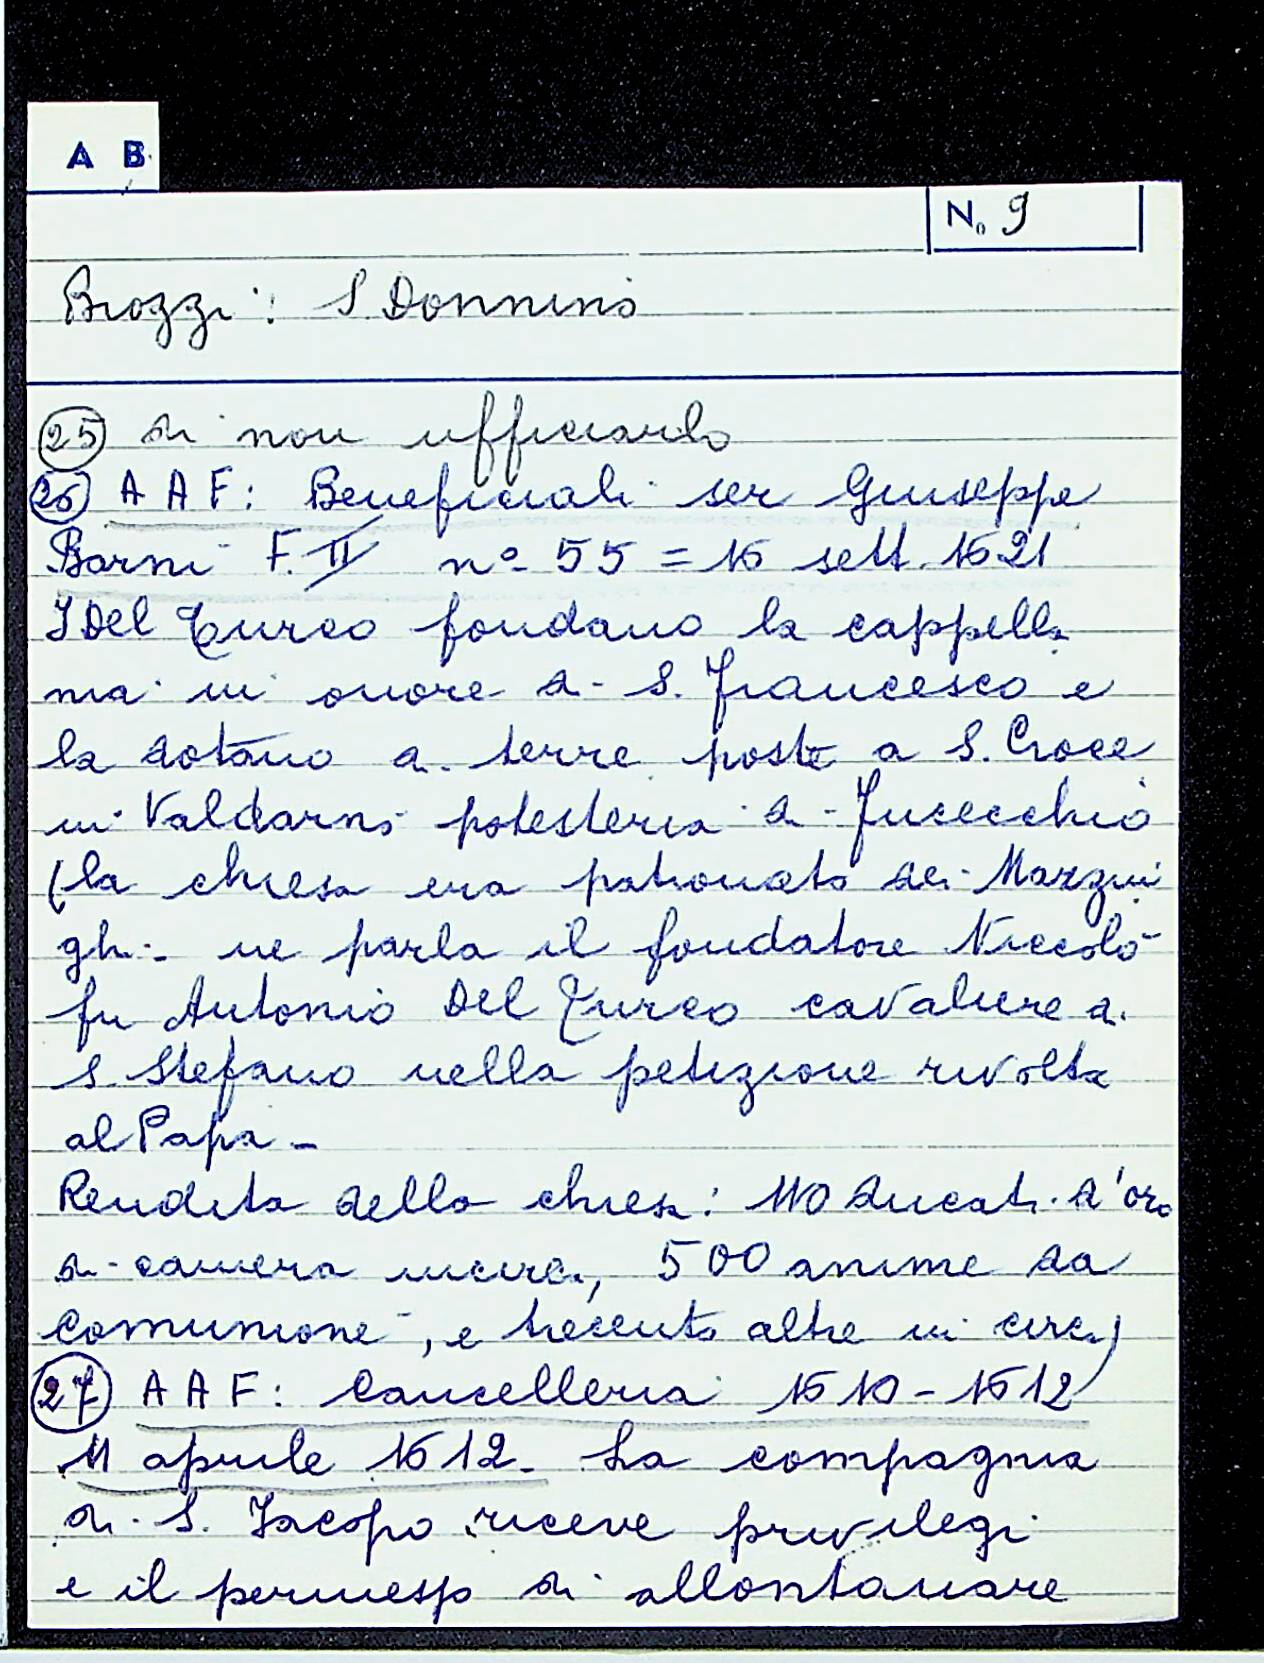 A B
N. 9
Brozzi: S. Donnino
25 di non ufficiarlo
26 A A F: Beneficiali ser Giuseppe
Barni F. II n° 55 = 16 sett. 1621
I Del Turco fondano la cappella
nia in onore di S. Francesco e
la dotano di terre poste a S. Croce
in Valdarno potesteria di Fucecchio
(la chiesa era patronato dei Marzin
ghi - ne parla il fondatore Niccolò
fu Antonio Del Turco cavaliere di
S. Stefano nella petizione rivolta
al Papa -
Rendita della chiesa: 110 ducati d'oro
di camera incirca, 500 anime da
comunione, e trecento altre in circa)
27 A A F: Cancelleria 1610 - 1612
11 aprile 1612. La compagnia
di S. Jacopo riceve privilegi
e il permesso di allontanare